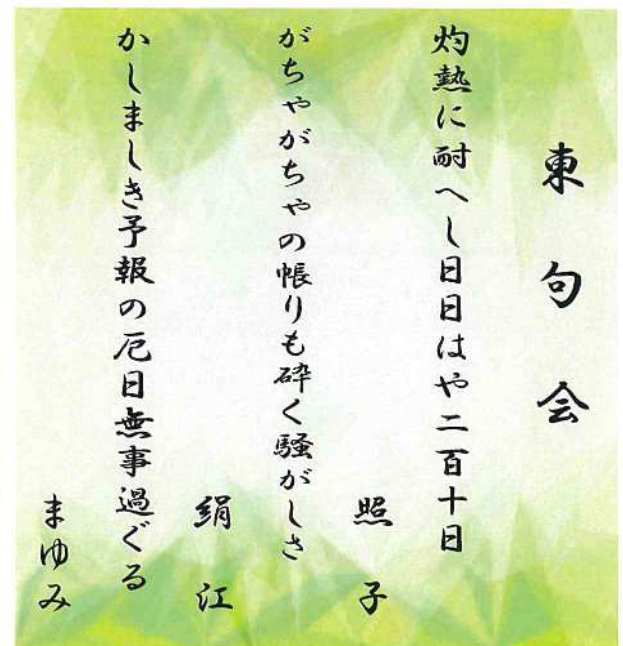 東句会
灼熱に耐へし日日はや二百十日
照子
がちやがちやの帳りも砕く騒がしさ
絹江
かしましき予報の厄日無事過ぐる
まゆみ